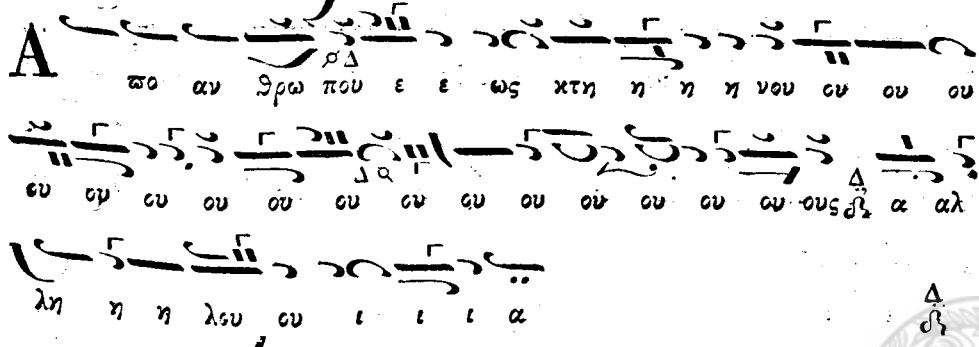 Α πο αν θρω που ε ε ως κτη η η η νου ου ου ου
ου ου ου ου ου ου ου ου ου ου ου ου ου ους Δ α αλ
λη η η λου ου ι ι ι α Δ